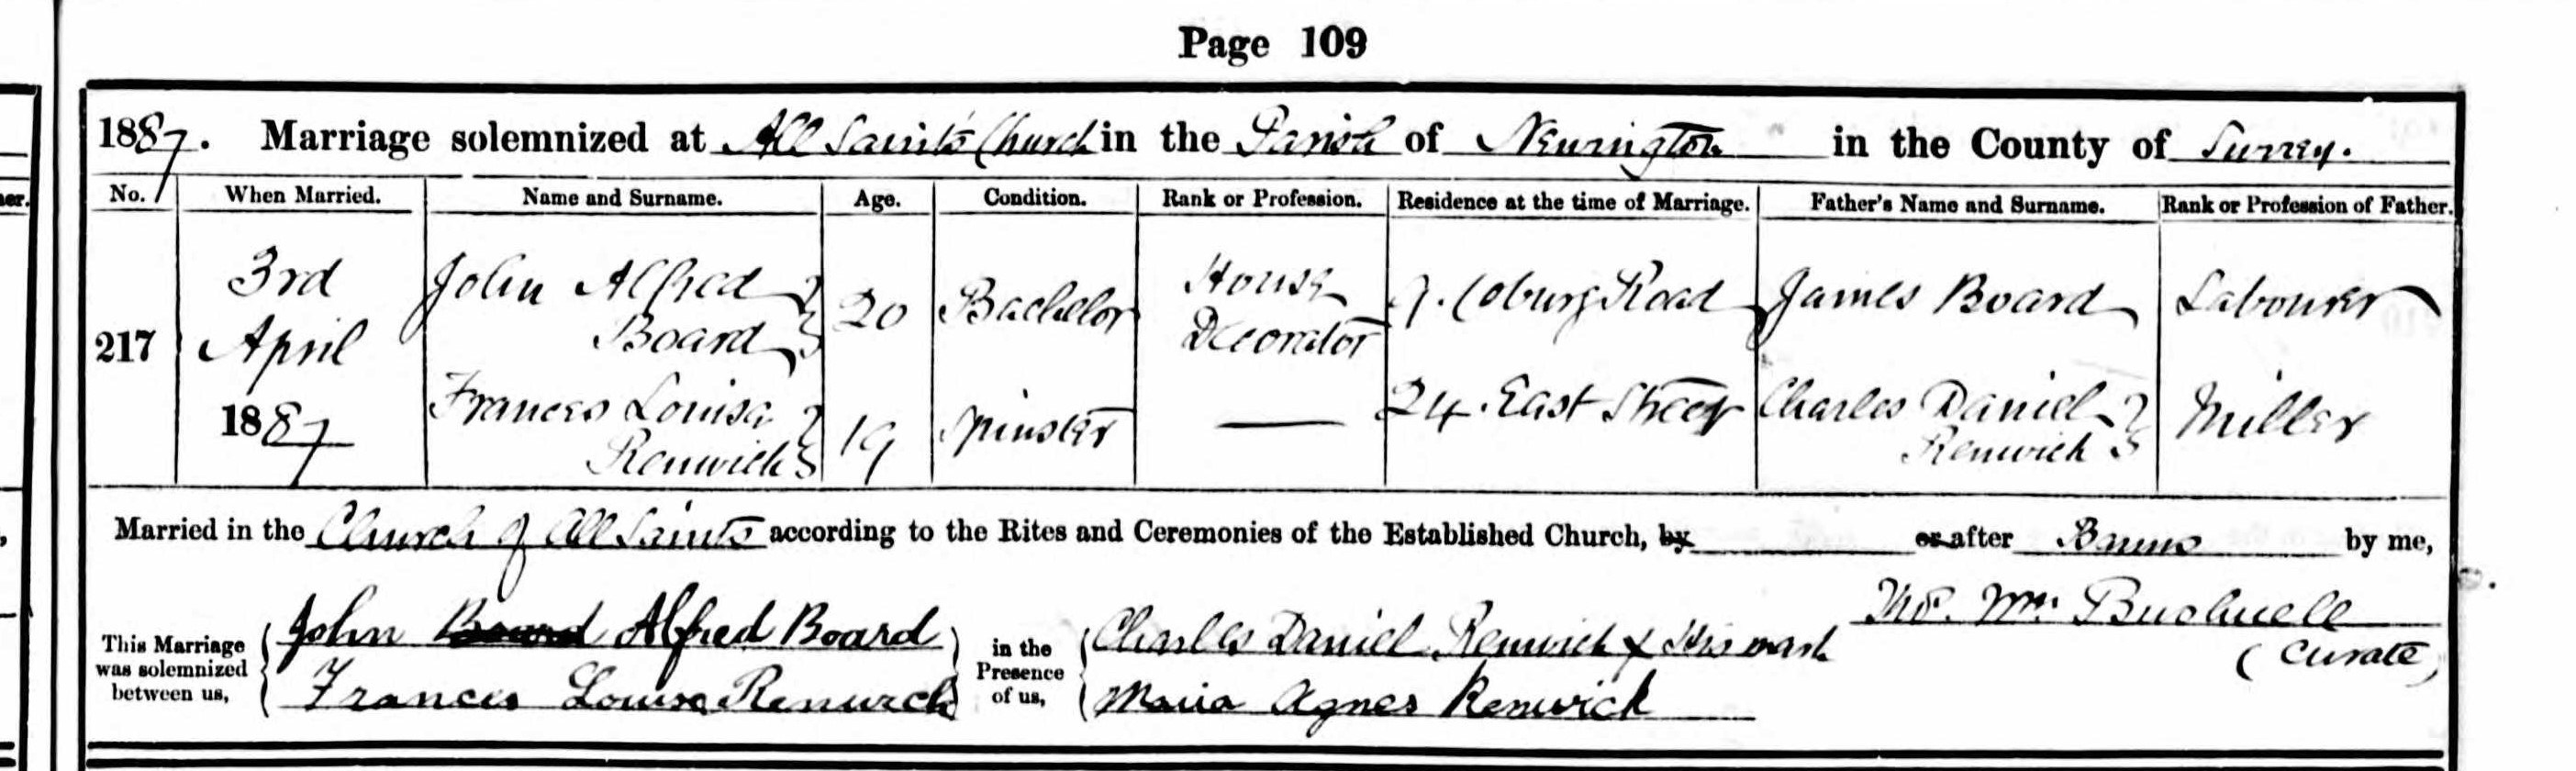 Page 109
1887. Marriage solemnized at All Saints Church in the Parish of Newington in the County of Surrey.
No. When Married. Name and Surname. Age. Condition. Rank or Profession. Residence at the time of Marriage. Father's Name and Surname. Rank or Profession of Father.
217 3rd April 1887 John Alfred Board 20 Bachelor House Decorator 7. Coburg Road James Board Labourer
Frances Louisa Renwick 19 Spinster — 24. East Street Charles Daniel Renwick Miller
Married in the Church of All Saints according to the Rites and Ceremonies of the Established Church, by or after Banns by me,
This Marriage was solemnized between us, John Board Alfred Board in the Presence of us, Charles Daniel Renwick X His mark
Frances Louisa Renwick Maria Agnes Renwick
Wm. Bushnell
(Curate)